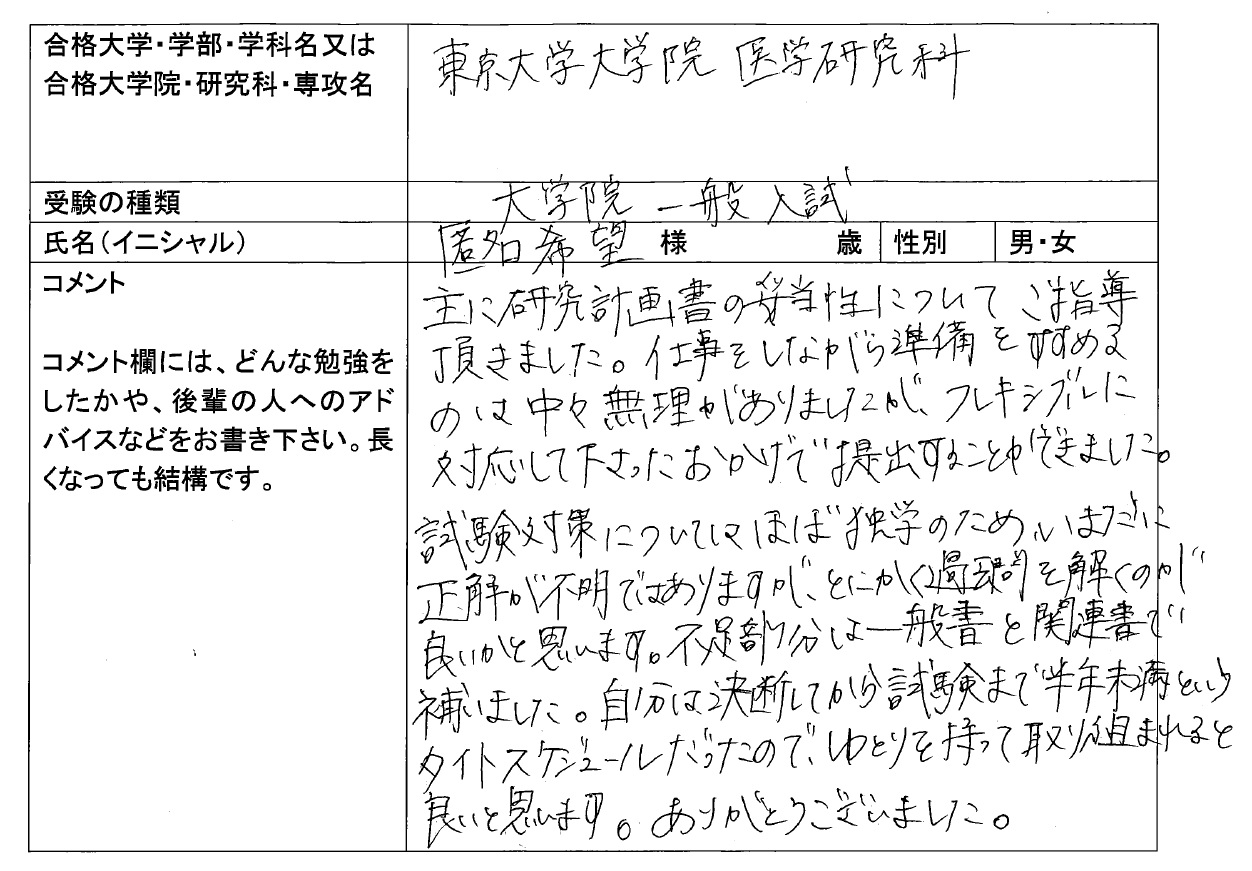 合格大学・学部・学科名又は
合格大学院・研究科・専攻名
東京大学大学院 医学研究科
受験の種類
大学院 一般入試
氏名(イニシャル)
匿名希望 様 歳 性別 男・女
コメント
コメント欄には、どんな勉強を
したかや、後輩の人へのアド
バイスなどをお書き下さい。長
くなっても結構です。
主に研究計画書の妥当性についてご指導
頂きました。仕事をしながら準備をすすめる
のは中々無理がありましたが、フレキシブルに
対応して下さったおかげで提出することができました。
試験対策についてはほぼ独学のため、いまだに
正解が不明ではありますが、とにかく過去問を解くのが
良いかと思います。不足部分は一般書と関連書で
補いました。自分は決断してから試験まで半年未満という
タイトスケジュールだったので、ゆとりを持って取り組まれると
良いと思います。ありがとうございました。